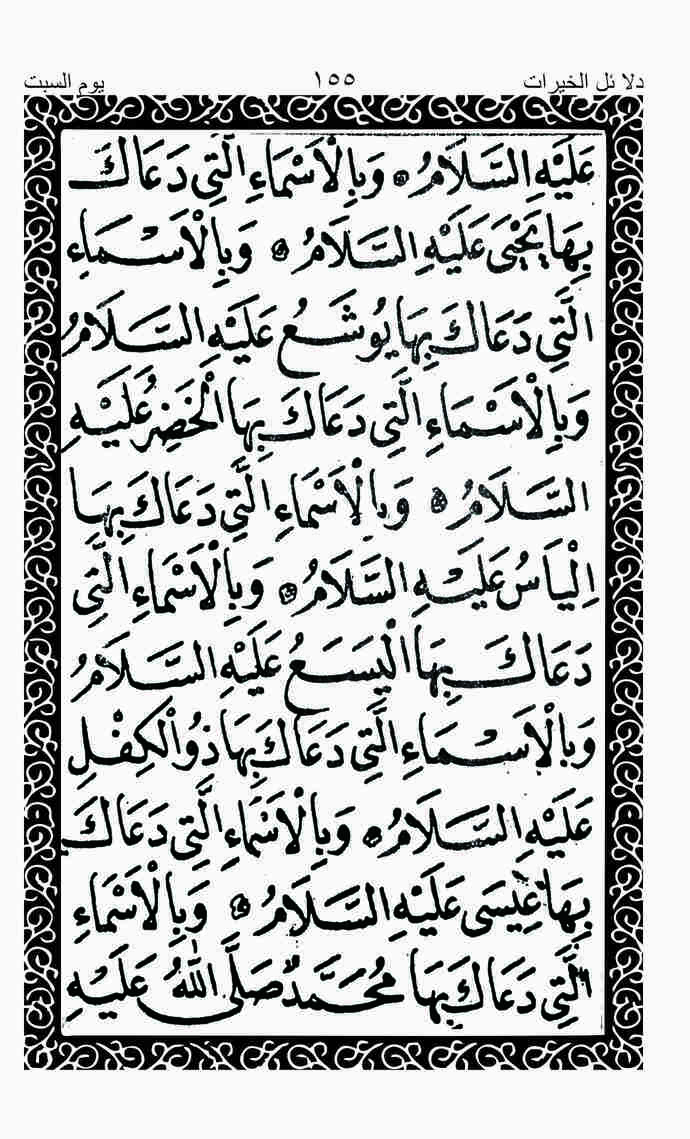 دلائل الخيرات ١٥٥ يوم السبت
عَلَيْهِ السَّلَامُ ۞ وَبِالْاَسْمَاءِ الَّتِي دَعَاكَ
بِهَا يَحْيٰى عَلَيْهِ السَّلَامُ ۞ وَبِالْاَسْمَاءِ
الَّتِي دَعَاكَ بِهَا يُوشَعُ عَلَيْهِ السَّلَامُ
وَبِالْاَسْمَاءِ الَّتِي دَعَاكَ بِهَا الْخَضِرُ عَلَيْهِ
السَّلَامُ ۞ وَبِالْاَسْمَاءِ الَّتِي دَعَاكَ بِهَا
اِلْيَاسُ عَلَيْهِ السَّلَامُ ۞ وَبِالْاَسْمَاءِ الَّتِي
دَعَاكَ بِهَا الْيَسَعُ عَلَيْهِ السَّلَامُ
وَبِالْاَسْمَاءِ الَّتِي دَعَاكَ بِهَا ذُو الْكِفْلِ
عَلَيْهِ السَّلَامُ ۞ وَبِالْاَسْمَاءِ الَّتِي دَعَاكَ
بِهَا عِيسَى عَلَيْهِ السَّلَامُ ۞ وَبِالْاَسْمَاءِ
الَّتِي دَعَاكَ بِهَا مُحَمَّدٌ صَلَّى اللّٰهُ عَلَيْهِ